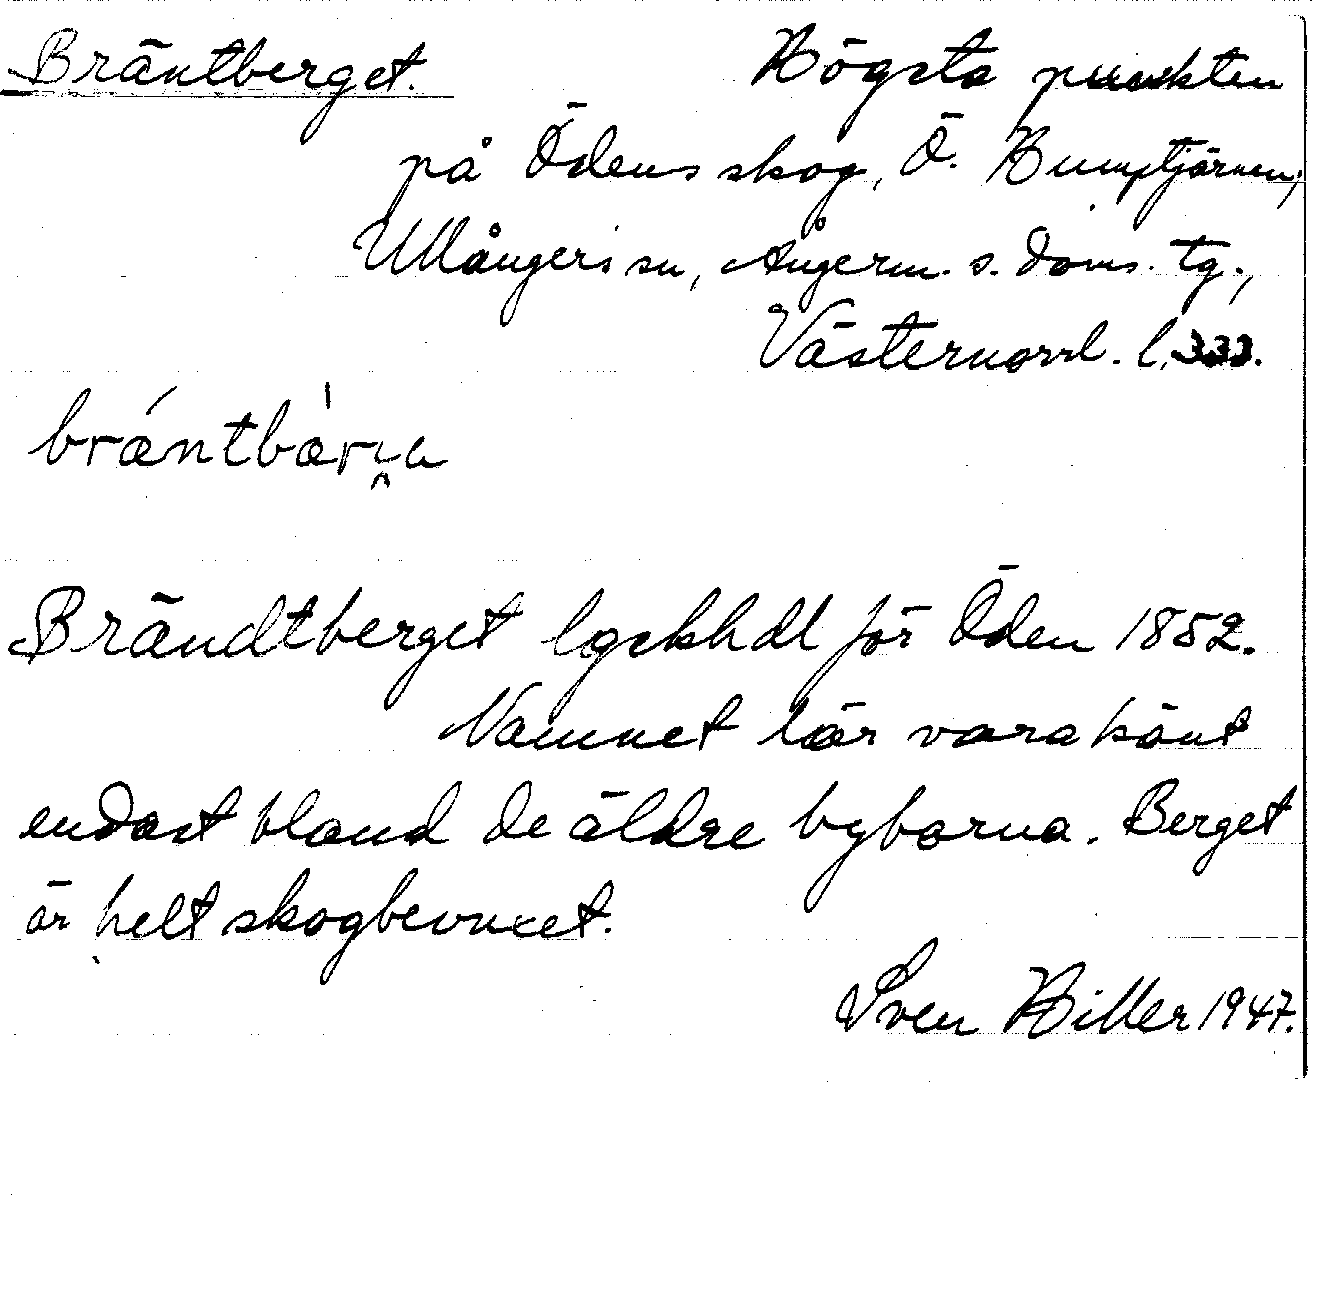 Bräntberget. Högsta punkten
på Ödens skog, Ö. Humptjärnen,
Ullångers sn, Ångerm. s. doms. tg.,
Västernorrl. l. 333.
bræ´ntbærıa
Brändtberget lgckhdl för Öden 1852.
Namnet lär vara känt
endast bland de äldre byborna. Berget
är helt skogbevuxet.
Sven Hiller 1947.